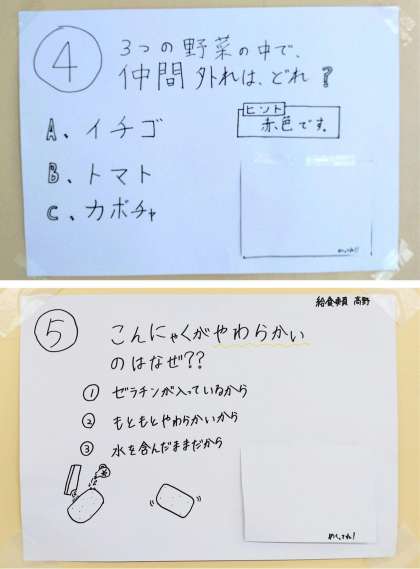 ④
3つの野菜の中で、
仲間外れは、どれ?
ヒント
赤色です。
A、イチゴ
B、トマト
C、カボチャ
めくってね!!
給食委員 高野
⑤
こんにゃくがやわらかい
のはなぜ??
① ゼラチンが入っているから
② もともとやわらかいから
③ 水を含んだままだから
めくってね!